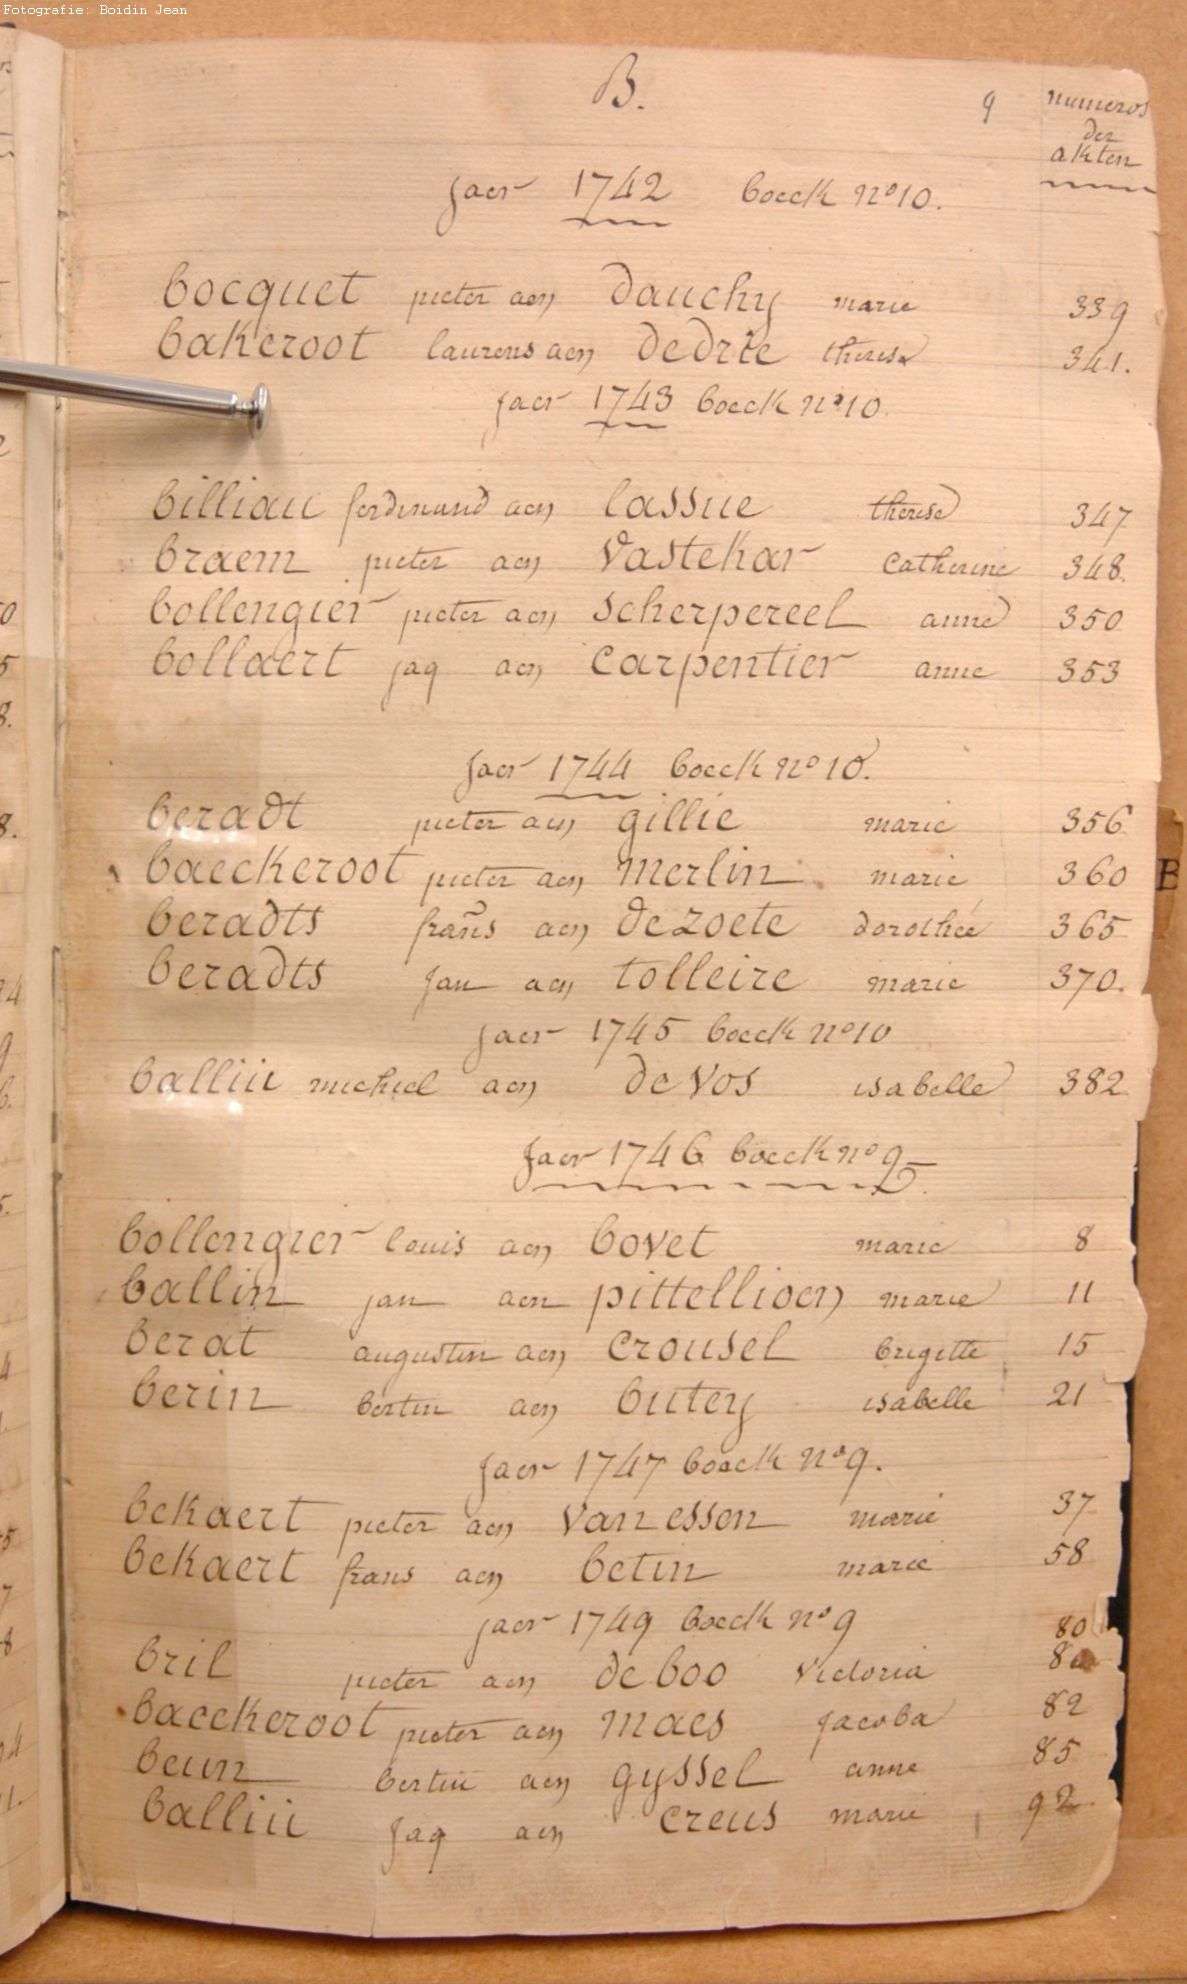 Fotografie: Boidin Jean
B. 9 numeros
der
akten
jaer 1742 boeck nº 10.
bocquet pieter aen dauchy marie 339
bakeroot laurens aen dedrie theresa 341.
jaer 1743 boeck nº 10
billiau ferdinand aen lassue therese 347
braem pieter aen vastekar catherine 348.
bollengier pieter aen scherpereel anne 350
bollaert jaq aen carpentier anne 353
jaer 1744 boeck nº 10.
beradt pieter aen gillie marie 356
baeckeroot pieter aen merlin marie 360
beradts frans aen dezoete dorothée 365
beradts jan aen tolleire marie 370.
jaer 1745 boeck nº 10
balliu michiel aen de vos isabelle 382
jaer 1746 boeck nº 9
bollengier louis aen bovet marie 8
ballin jan aen pittellioen marie 11
berat augustin aen crousel brigitte 15
berin bertin aen butey isabelle 21
jaer 1747 boeck nº 9.
bekaert pieter aen van esson marie 37
bekaert frans aen betin marie 58
jaer 1749 boeck nº 9 80
bril pieter aen de boo victoria
baeckeroot pieter aen maes jacoba 82
beun bertin aen gyssel anne 85
balliu jaq aen creus marie 92
B